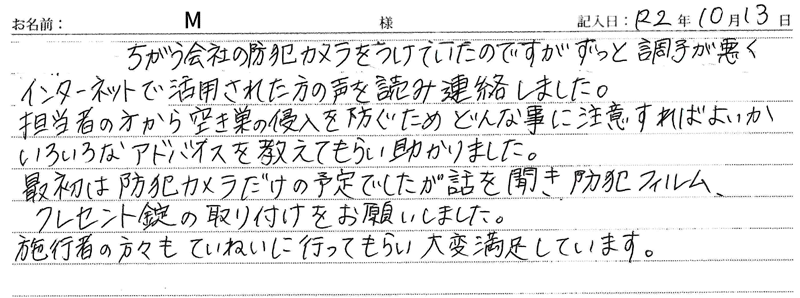 お名前： M 様 記入日：R2年10月13日
ちがう会社の防犯カメラをつけていたのですがずっと調子が悪く
インターネットで活用された方の声を読み連絡しました。
担当者の方から空き巣の侵入を防ぐためどんな事に注意すればよいか
いろいろなアドバイスを教えてもらい助かりました。
最初は防犯カメラだけの予定でしたが話を聞き防犯フィルム、
クレセント錠の取り付けをお願いしました。
施行者の方々もていねいに行ってもらい大変満足しています。